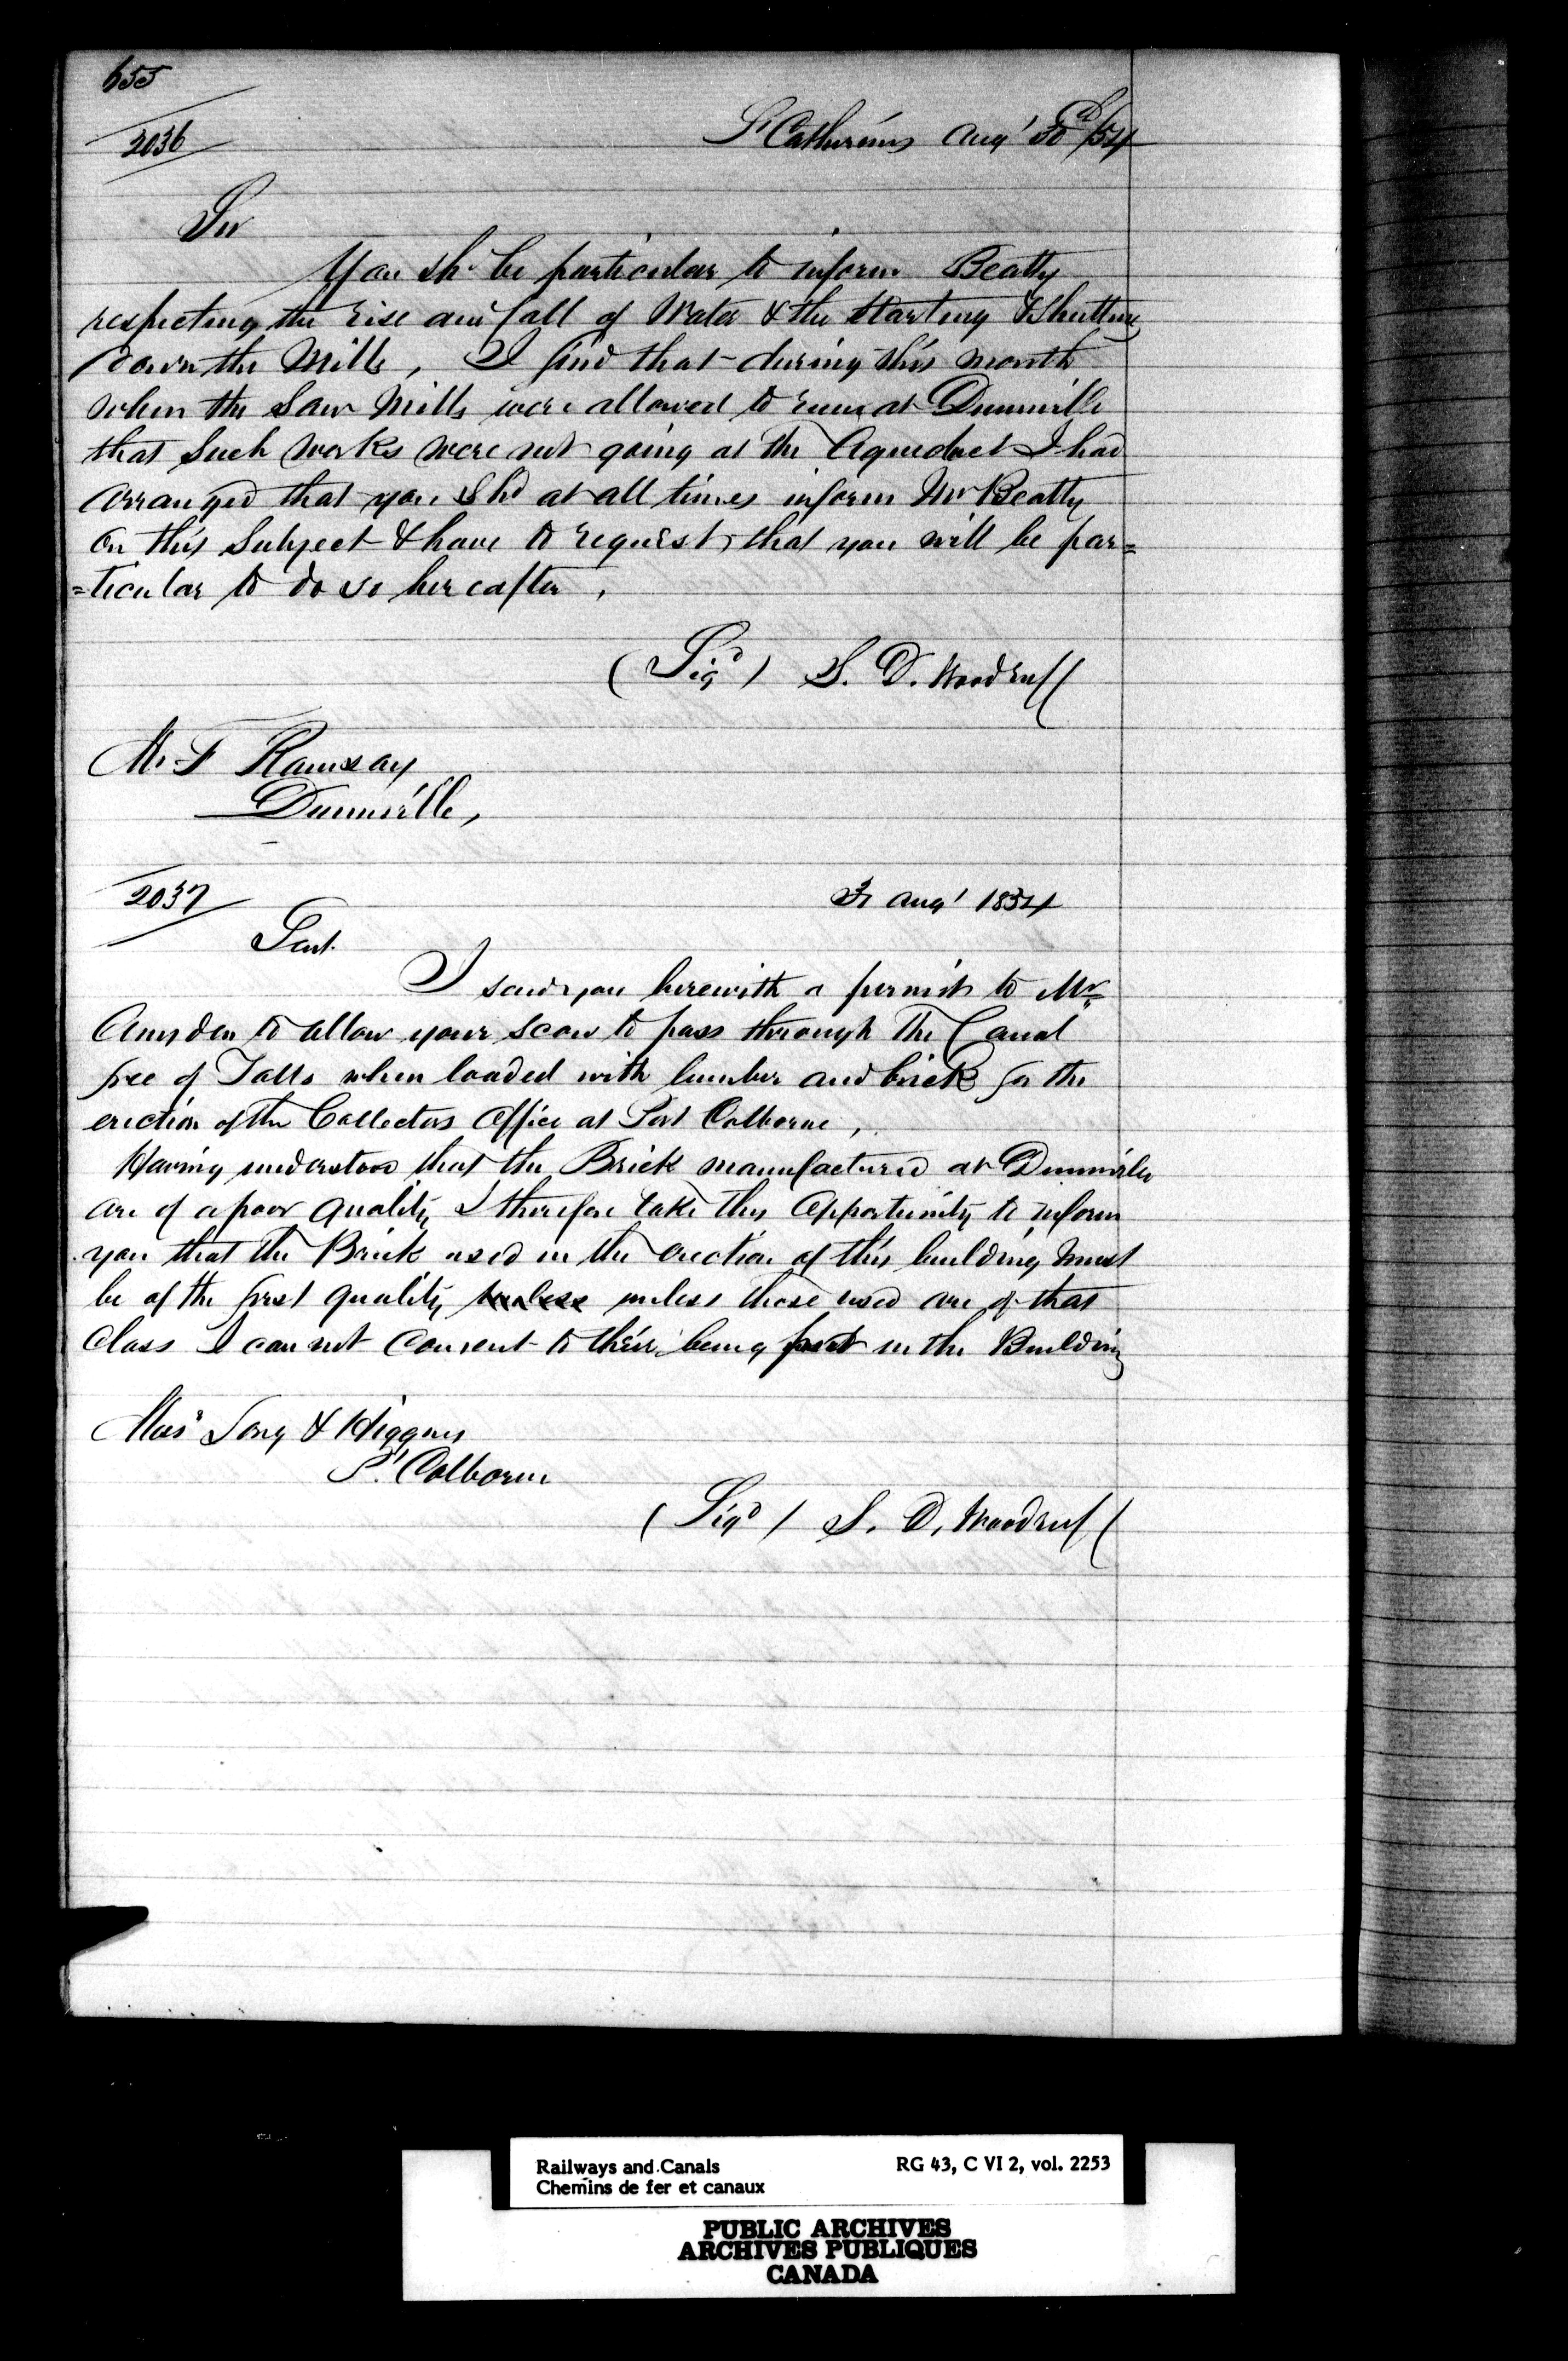 655
2036
St Catherines Augt 30th /54
Sir
You shd be particular to inform Beatty
respecting the rise and fall of Water & the Starting & Shutting
down the Mills, I find that during this month
when the Saw Mills were allowed to run at Dunnville
that such works were not going at the Aqueduct I had
arranged that you Shd at all times inform Mr Beatty
on this Subject & have to request, that you will be par=
=ticular to do so hereafter,
(Sigd) S. D. Woodruff
Mr F Ramsay
Dunnville,
2037
31 Augt 1854
Gent.
I send you herewith a permit to Mr
Amsden to allow your scow to pass through the Canal
free of Tolls when loaded with lumber and brick for the
erection of the Collectors Office at Port Colborne,
Having understood that the Brick manufactured at Dunnville
are of a poor quality I therefore take this Opportunity to inform
you that the Brick used in the erection of this building must
be of the first quality unless unless those used are of that
Class I can not consent to their being put in the Building
Messrs Long & Higgins
Pt Colborne
(Sigd) S. D. Woodruff
Railways and Canals
Chemins de fer et canaux
RG 43, C VI 2, vol. 2253
PUBLIC ARCHIVES
ARCHIVES PUBLIQUES
CANADA